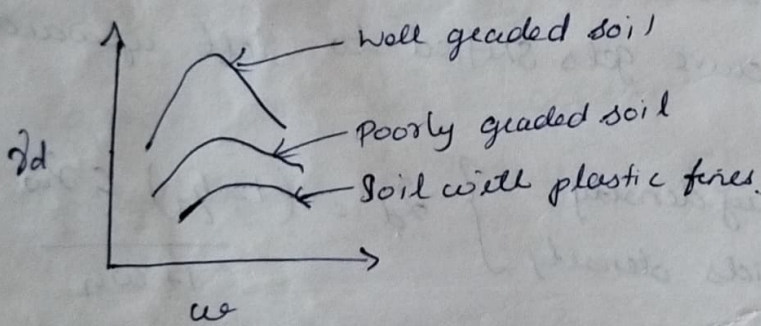 Well graded soil
Poorly graded soil
γd
Soil with plastic fines.
w